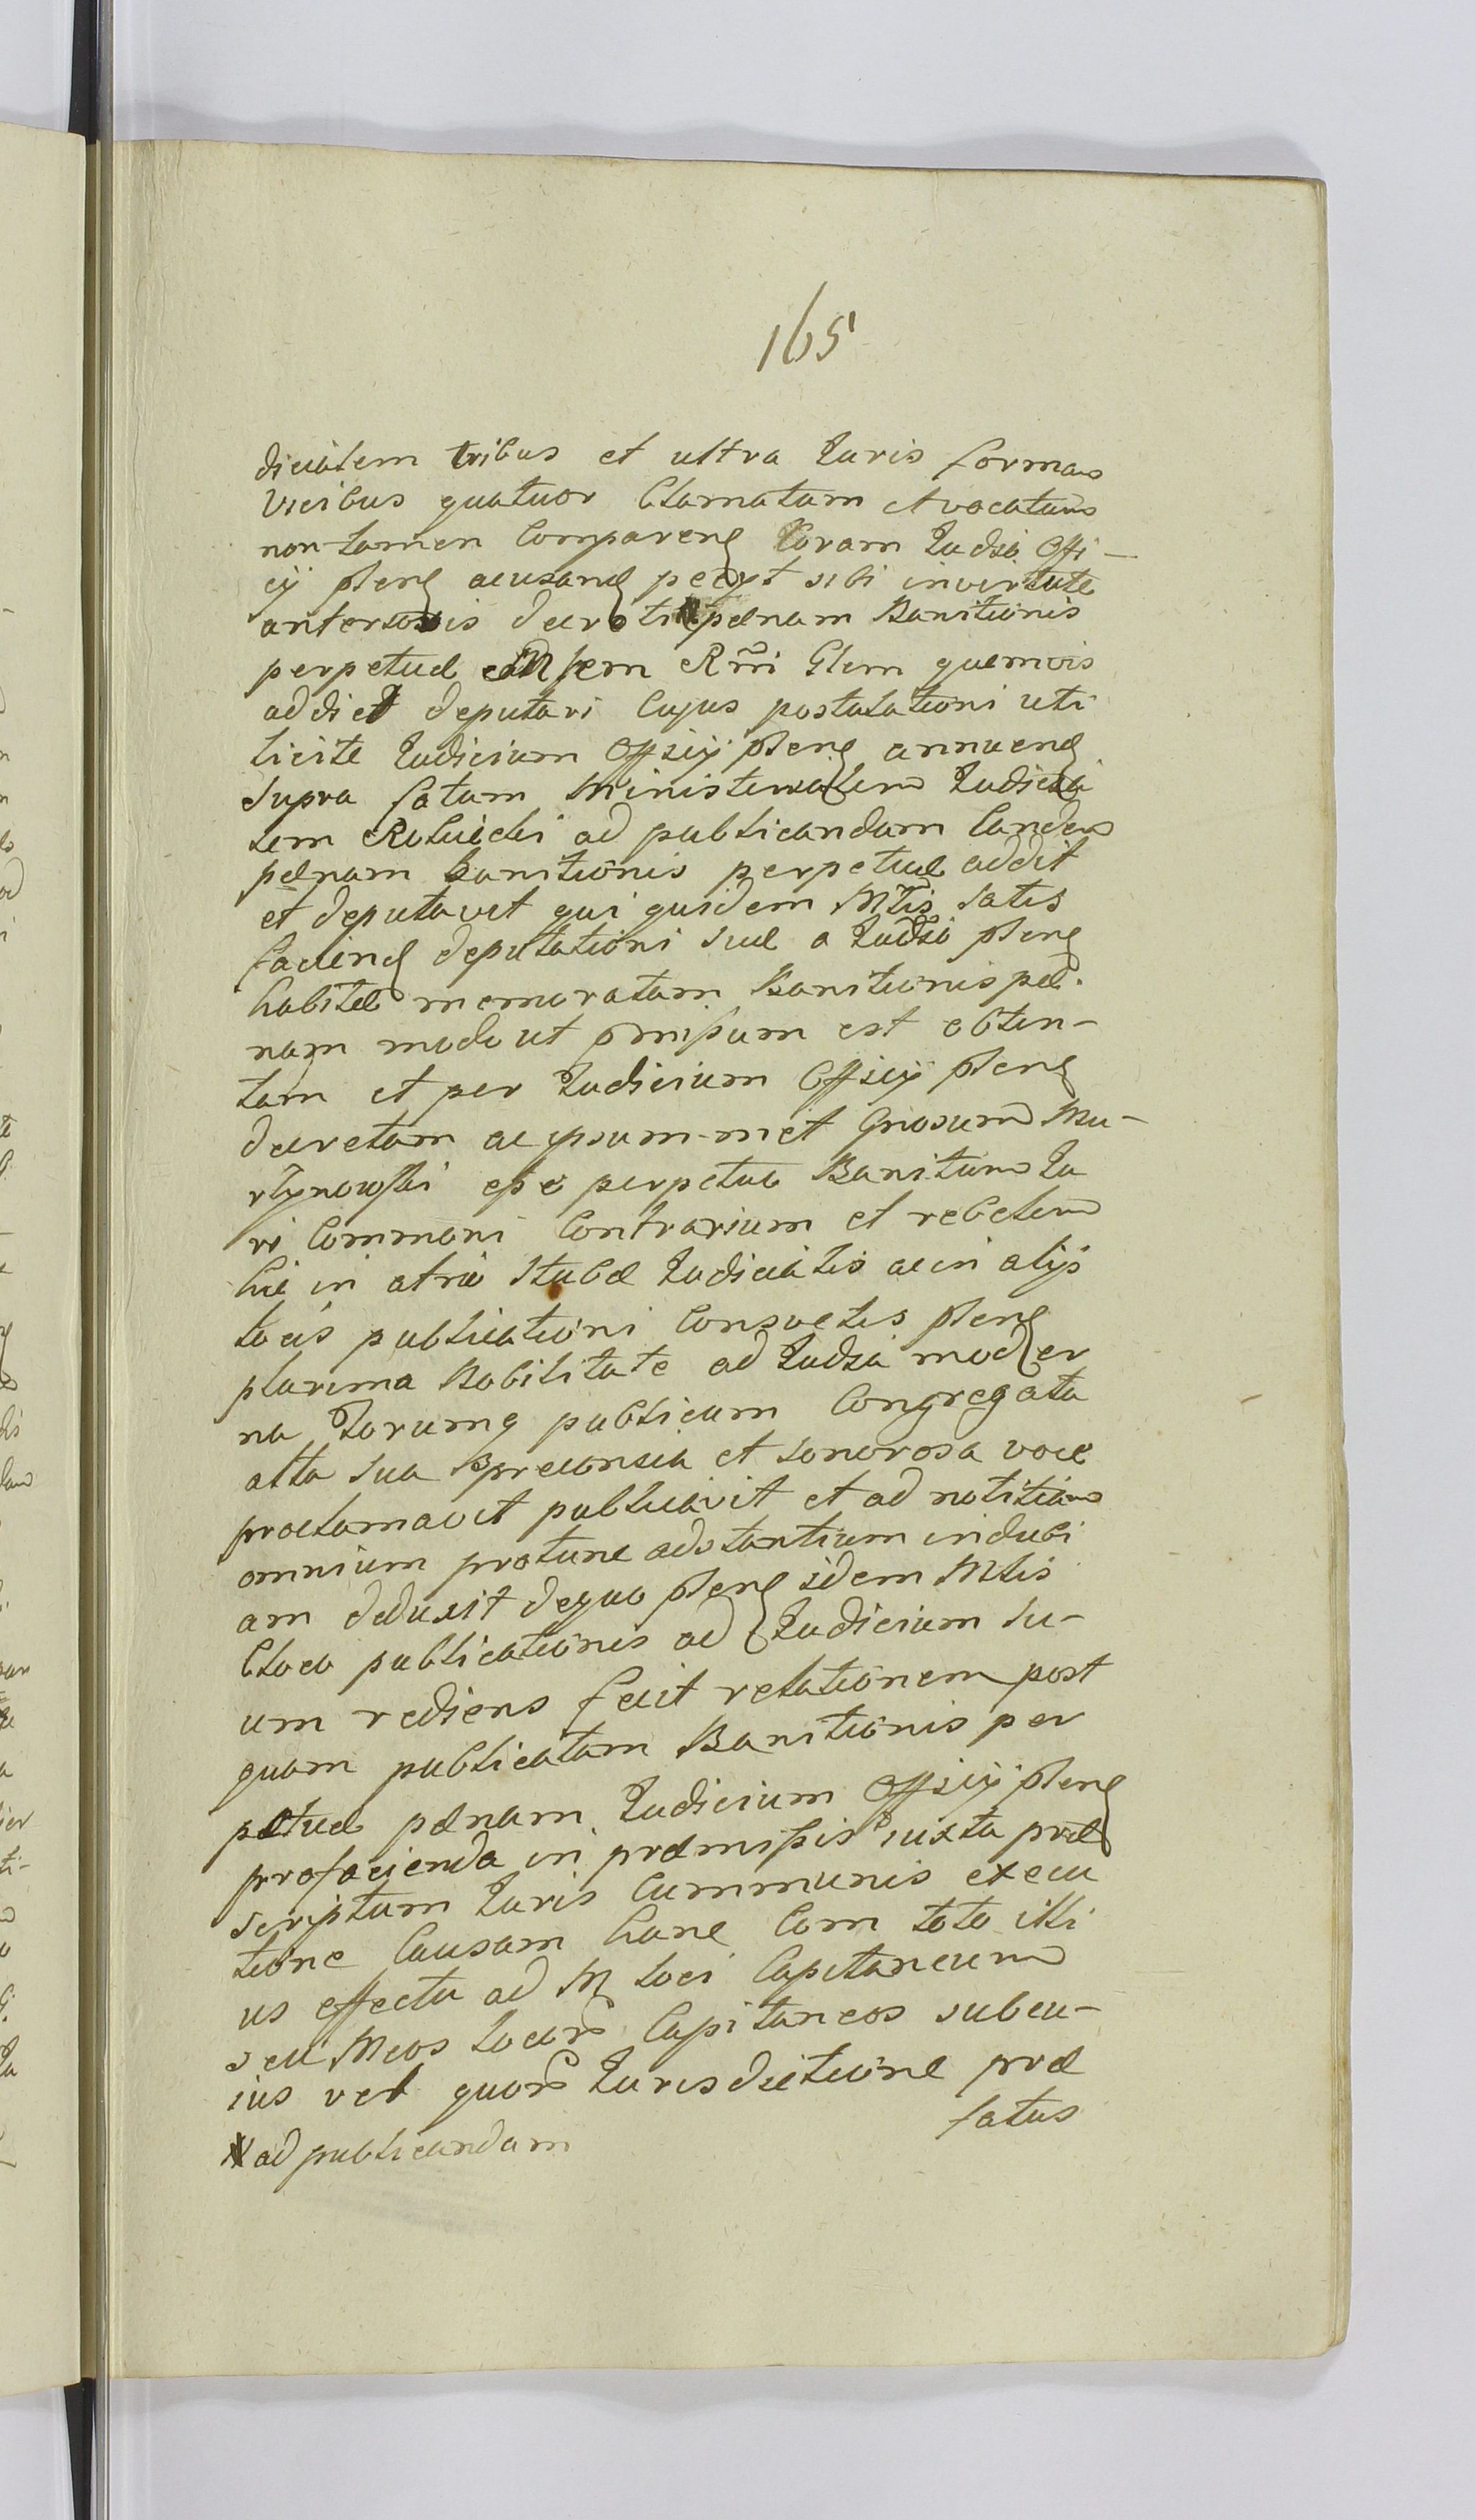 165
dicialem tribus et ultra Iuris formam
vicibus quatuor Clamatum Avocatum
non tamen Comparen Coram Iudio Offi-
cij pten acusand petyt sibi in virtute
anteriovis decreti pænam Banitionis
perpetuæ idem Rmi Glem quemvis
addici deputari Cujus postulationi uti
licite Iudicium Officij pten annuend
supra fatum Ministerialem Iudicia
lem Rolinski ad publicandam Candem
pænam banitionis perpetuæ addit
et deputavit qui quidem Mtis satis
faciend deputationi suæ a Iudio pten
habitæ memoratam Banitionis pæ
nam modo ut pmissum est obten-
tam et per Iudicium Officij pten
decretam ac ipsum-met Gnosum Ma-
rtynowski esse perpetuo Banitum Iu
ri Communi Contrarium et rebelem
hic in atrio Stubæ Iudicialis ac in alijs
locis publicationi Consvetis pten
plurima Nobilitate ad Iudia moder
na Forumq publicum Congregata
alta sua præconia et sonorosa voce
proclamavit publicavit et ad notitiam
omnium protunc adstantium indubi
am deduxit de quo pten idem Mtis
Cloco publicationis ad Iudicium su-
um rediens fecit relationem post
quam publicatam Banitionis per
petuæ pænam Iudicium Officij pten
pro facienda in præmissis iuxta præ
scriptum Iuris Cummunis execu
tione Causam hanc Com toto illi
us effectu ad M loci Capitaneum
seu Mcos locor Capitaneos sub cu-
ius vel quor Iurisdictione præ
fatus
ad publicandam